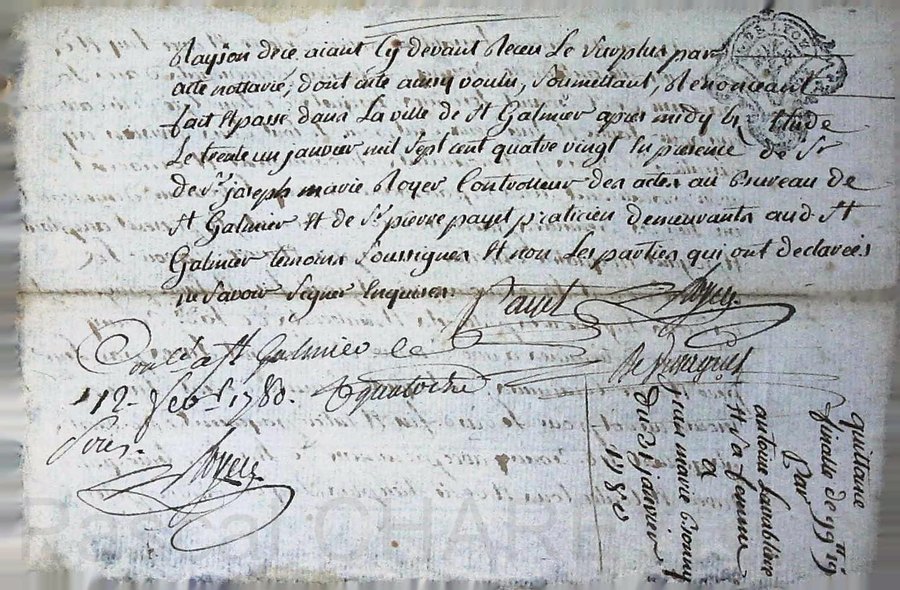 ayant cy devant Recu Le Surplus par
acte nottarié, dont acte ainsy voulu, Soumettant, Renonceant
fait et passé dans La ville de St Galmier apres midy
Le trente un janvier mil sept cent quatre vingt En presence de Sr
de Sr joseph marie Royer Controlleur des actes au Bureau de
St Galmier et de Sr pierre payet praticien demeurants aud. St
Galmier temoins Soussignes et non Les parties qui ont declarées
ne Savoir Signer Enquises
Payet Royer
Conlé a St Galmier le
12 febr 1780. R quatorze
Sous.
Royer
quittance
finalle de 99
Par
antoine
et sa femme
a
jean marie
du 31 janvier
1780
DE LYON
Pascal CHARE